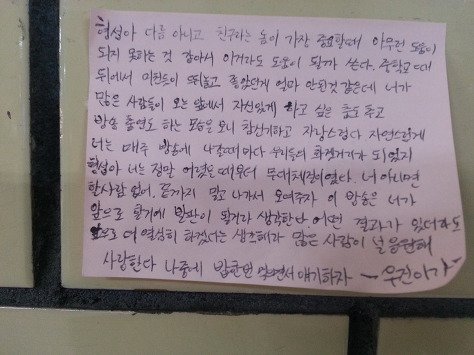 형섭아 다름 아니고 친구라는 놈이 가장 중요할때 아무런 도움이
되지 못하는 것 같아서 이거라도 도움이 될까 쓴다. 중학교때
뒤에서 미친듯이 뛰놀고 좋았던게 얼마 안된것 같은데 너가
많은 사람들이 보는 앞에서 자신있게 하고 싶은 춤도 추고
방송 출연도 하는 모습을 보니 참신기하고 자랑스럽다 자연스럽게
너는 매주 방송에 나올때마다 우리들의 화젯거리가 되었지
형섭아 너는 정말 어렸을때부터 무대체질이였다. 너 아니면
한사람 없어. 끝까지 믿고 나가서 보여주자 이 방송은 너가
앞으로 활기에 발판이 될거라 생각한다 어떤 결과가 있더라도
앞으로 더 열심히 하겠다는 생각해라 많은 사람이 널 응원해
사랑한다 나중에 밥한번 먹으면서 얘기하자 - 우진이가 -